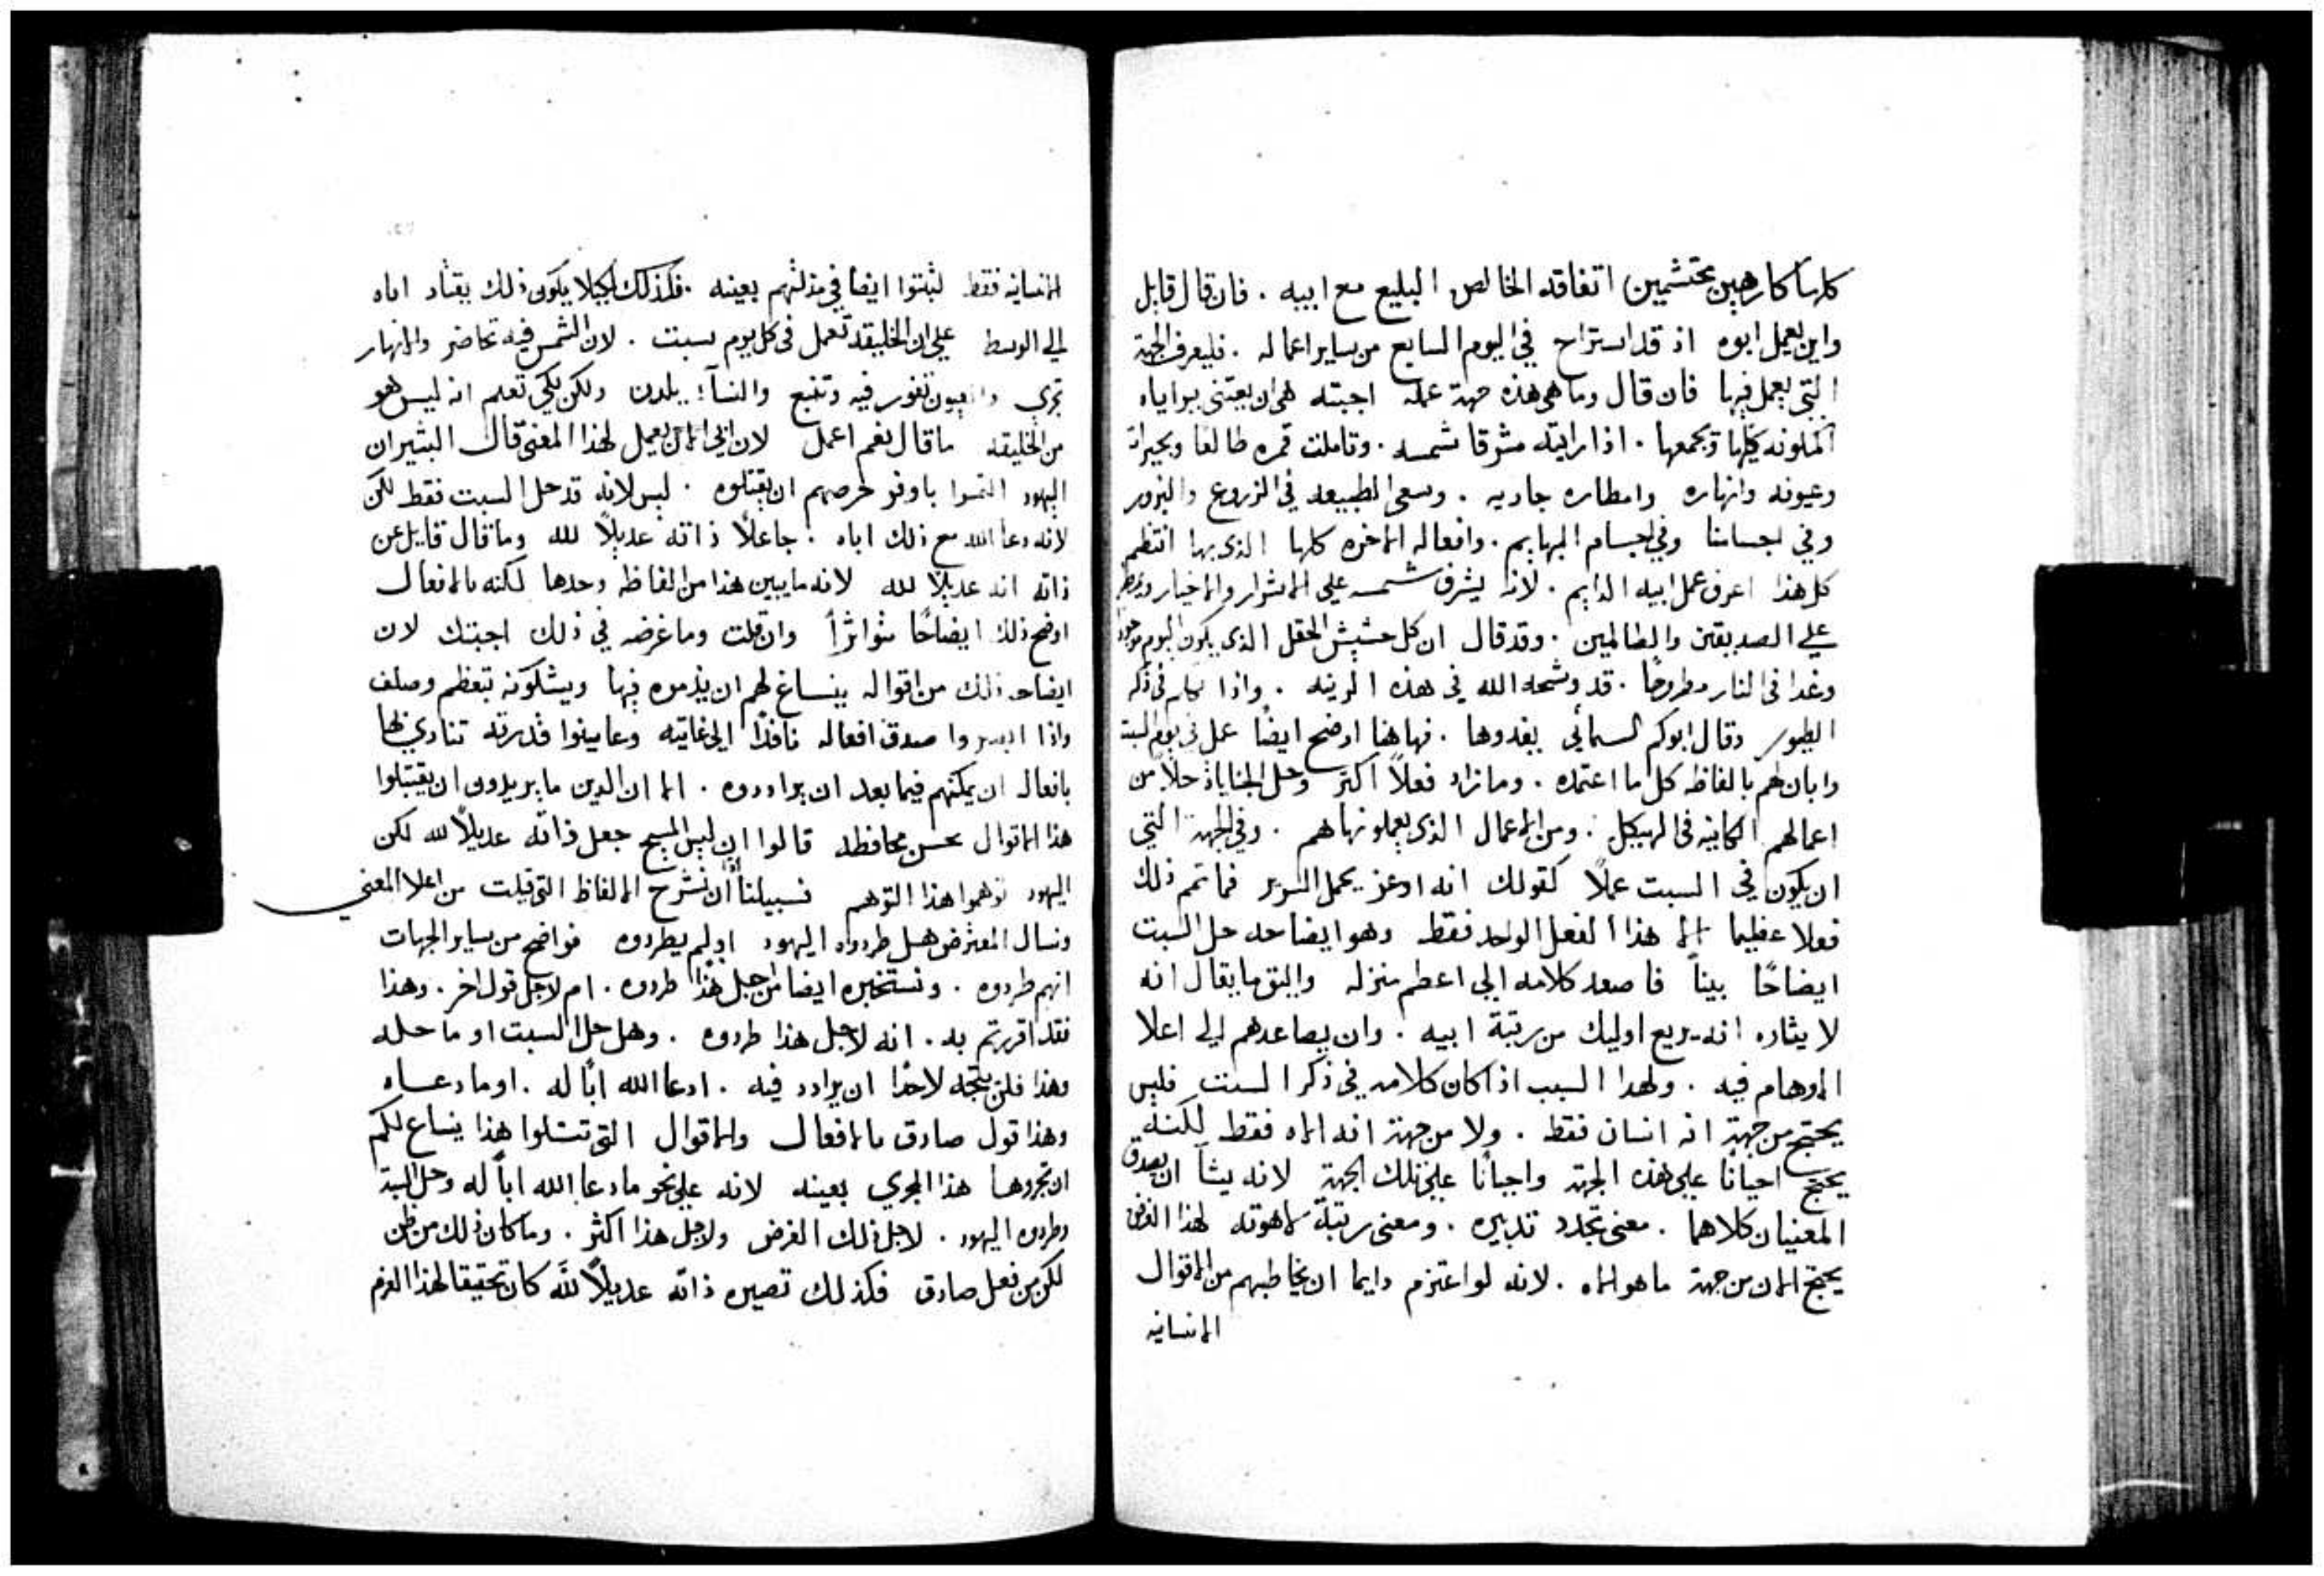 كلها كارهين محتشمين اتفاقه الخالص البليغ مع ابيه . فان قال قايل
واين يعمل ابوه اذ قد استراح في اليوم السابع من ساير اعماله . فليعرف الجهة
التي يعمل فيها فان قال وما هي هذه جهة عمله اجبته هي ان يعتني ببراياه
المكونه كلها ويجمعها . اذا رايته مشرقا شمسه . وتاملت قمره طالعا وبحيراته
وعيونه وانهاره وامطاره جاريه . وسعي الطبيعه في الزروع والبزور
وفي اجسامنا وفي اجسام البهايم . وافعاله الاخره كلها الذي بها انتظم
كل هذا اعرف عمل ابيه الدايم . لانه يشرف شمسه علي الاشرار والاخيار ويمطر
علي الصديقين والظالمين . وقد قال ان كل حشيش الحقل الذي يكون اليوم موجودا
وغدا في النار مطروحًا . قد وشحه الله في هذه الزينه . واذا تكلم في ذكر
الطيور وقال ابوكم السمائي يغدوها . فهاهنا اوضح ايضًا عمل في يوم السبت
وابان لهم بالفاظه كل ما اعتمده . وما زاد فعلاً اكثر وحل الجنايات حلاً من
اعمالهم الكاينه في الهيكل . ومن الاعمال الذي يعملونها هم . وفي الجهة التي
ان يكون في السبت عملاً كقولك انه اوعز بحمل السرير فما تمم ذلك
فعلا عظيما الا هذا الفعل الواحد فقط وهو ايضاحه حل السبت
ايضاحًا بينًا فاصعد كلامه الي اعظم منزله واليق ما يقال انه
لايثاره انه يريع اوليك من رتبة ابيه . وان يصاعدهم الي اعلا
الاوهام فيه . ولهدا السبب اذا كان كلامه في ذكر السبت فليس
يحتج من جهة انه انسان فقط . ولا من جهة انه الاه فقط لكنه
يحتج احيانًا علي هذه الجهة واحيانًا علي تلك الجهة لانه يشآ ان يصدق
المعنيان كلاهما . معني تجدد تدبيره . ومعني رتبة لاهوته لهذا الغرض
يحتج الان من جهة ما هو الاه . لانه لو اعتزم دايما ان يخاطبهم من الاقوال
الانسانيه
الانسانيه فقط لثبتوا ايضا في مذلتهم بعينه . فكذلك لكيلا يكون ذلك يقتاد اباه
الي الوسط علي ان الخليقه تعمل في كل يوم سبت . لان الشمس فيه تحاضر والانهار
تجري والعيون تفور فيه وتنبع والنسآء يلدن ولكن لكي تعلم انه ليس هو
من الخليقه ما قال نعم اعمل لان ابي الان يعمل لهذا المعني قال البشير ان
اليهود التمسوا باوفر حرصهم ان يقتلوه . ليس لانه قد حل السبت فقط لكن
لانه دعا الله مع ذلك اباه . جاعلاً ذاته عديلاً لله وما قال قايل عن
ذاته انه عديلاً لله لانه ما يبين هذا من الفاظه وحدها لكنه بالافعال
اوضح ذلك ايضاحًا متواترًا وان قلت وما غرضه في ذلك اجبتك لان
ايضاحه ذلك من اقواله ينساغ لهم ان يذموه فيها ويشكونه بتعظم وصلف
واذا ابصروا صدق افعاله نافدًا الي غايته وعاينوا قدرته تنادي لها
بافعاله ان يمكنهم فيما بعد ان يراددوه . الا ان الدين ما يريدون ان يقتبلوا
هذا الاقوال بحسن محافظه قالوا ان ليس المسيح جعل ذاته عديلاً لله لكن
اليهود توهموا هذا التوهم فسبيلنا اذًا ان نشرح الالفاظ التي قيلت من اعلا المعني
ونسال المعترض هل طردوه اليهود اولم يطردوه فواضح من ساير الجهات
انهم طردوه . ونستخبره ايضا من اجل هذا طردوه . ام لاجل قول اخر . وهذا
فقد اقررتم به . انه لاجل هذا طردوه . وهل حل السبت او ما حلله
وهذا فلن يتجه لاحدًا ان يرادد فيه . ادعا الله ابًا له . اوما دعاه
وهذا قول صادق بالافعال والاقوال التي تتلوا هذا ينساع لكم
ان تجروها هذا المجري بعينه لانه علي نحو ما دعا الله ابًا له وحل السبت
وطردوه اليهود . لاجل ذلك الغرض ولاجل هذا اكثر . وما كان ذلك من ظن
لكن من فعل صادق فكذلك تصيره ذاته عديلاً لله كان تحقيقا لهذا العزم